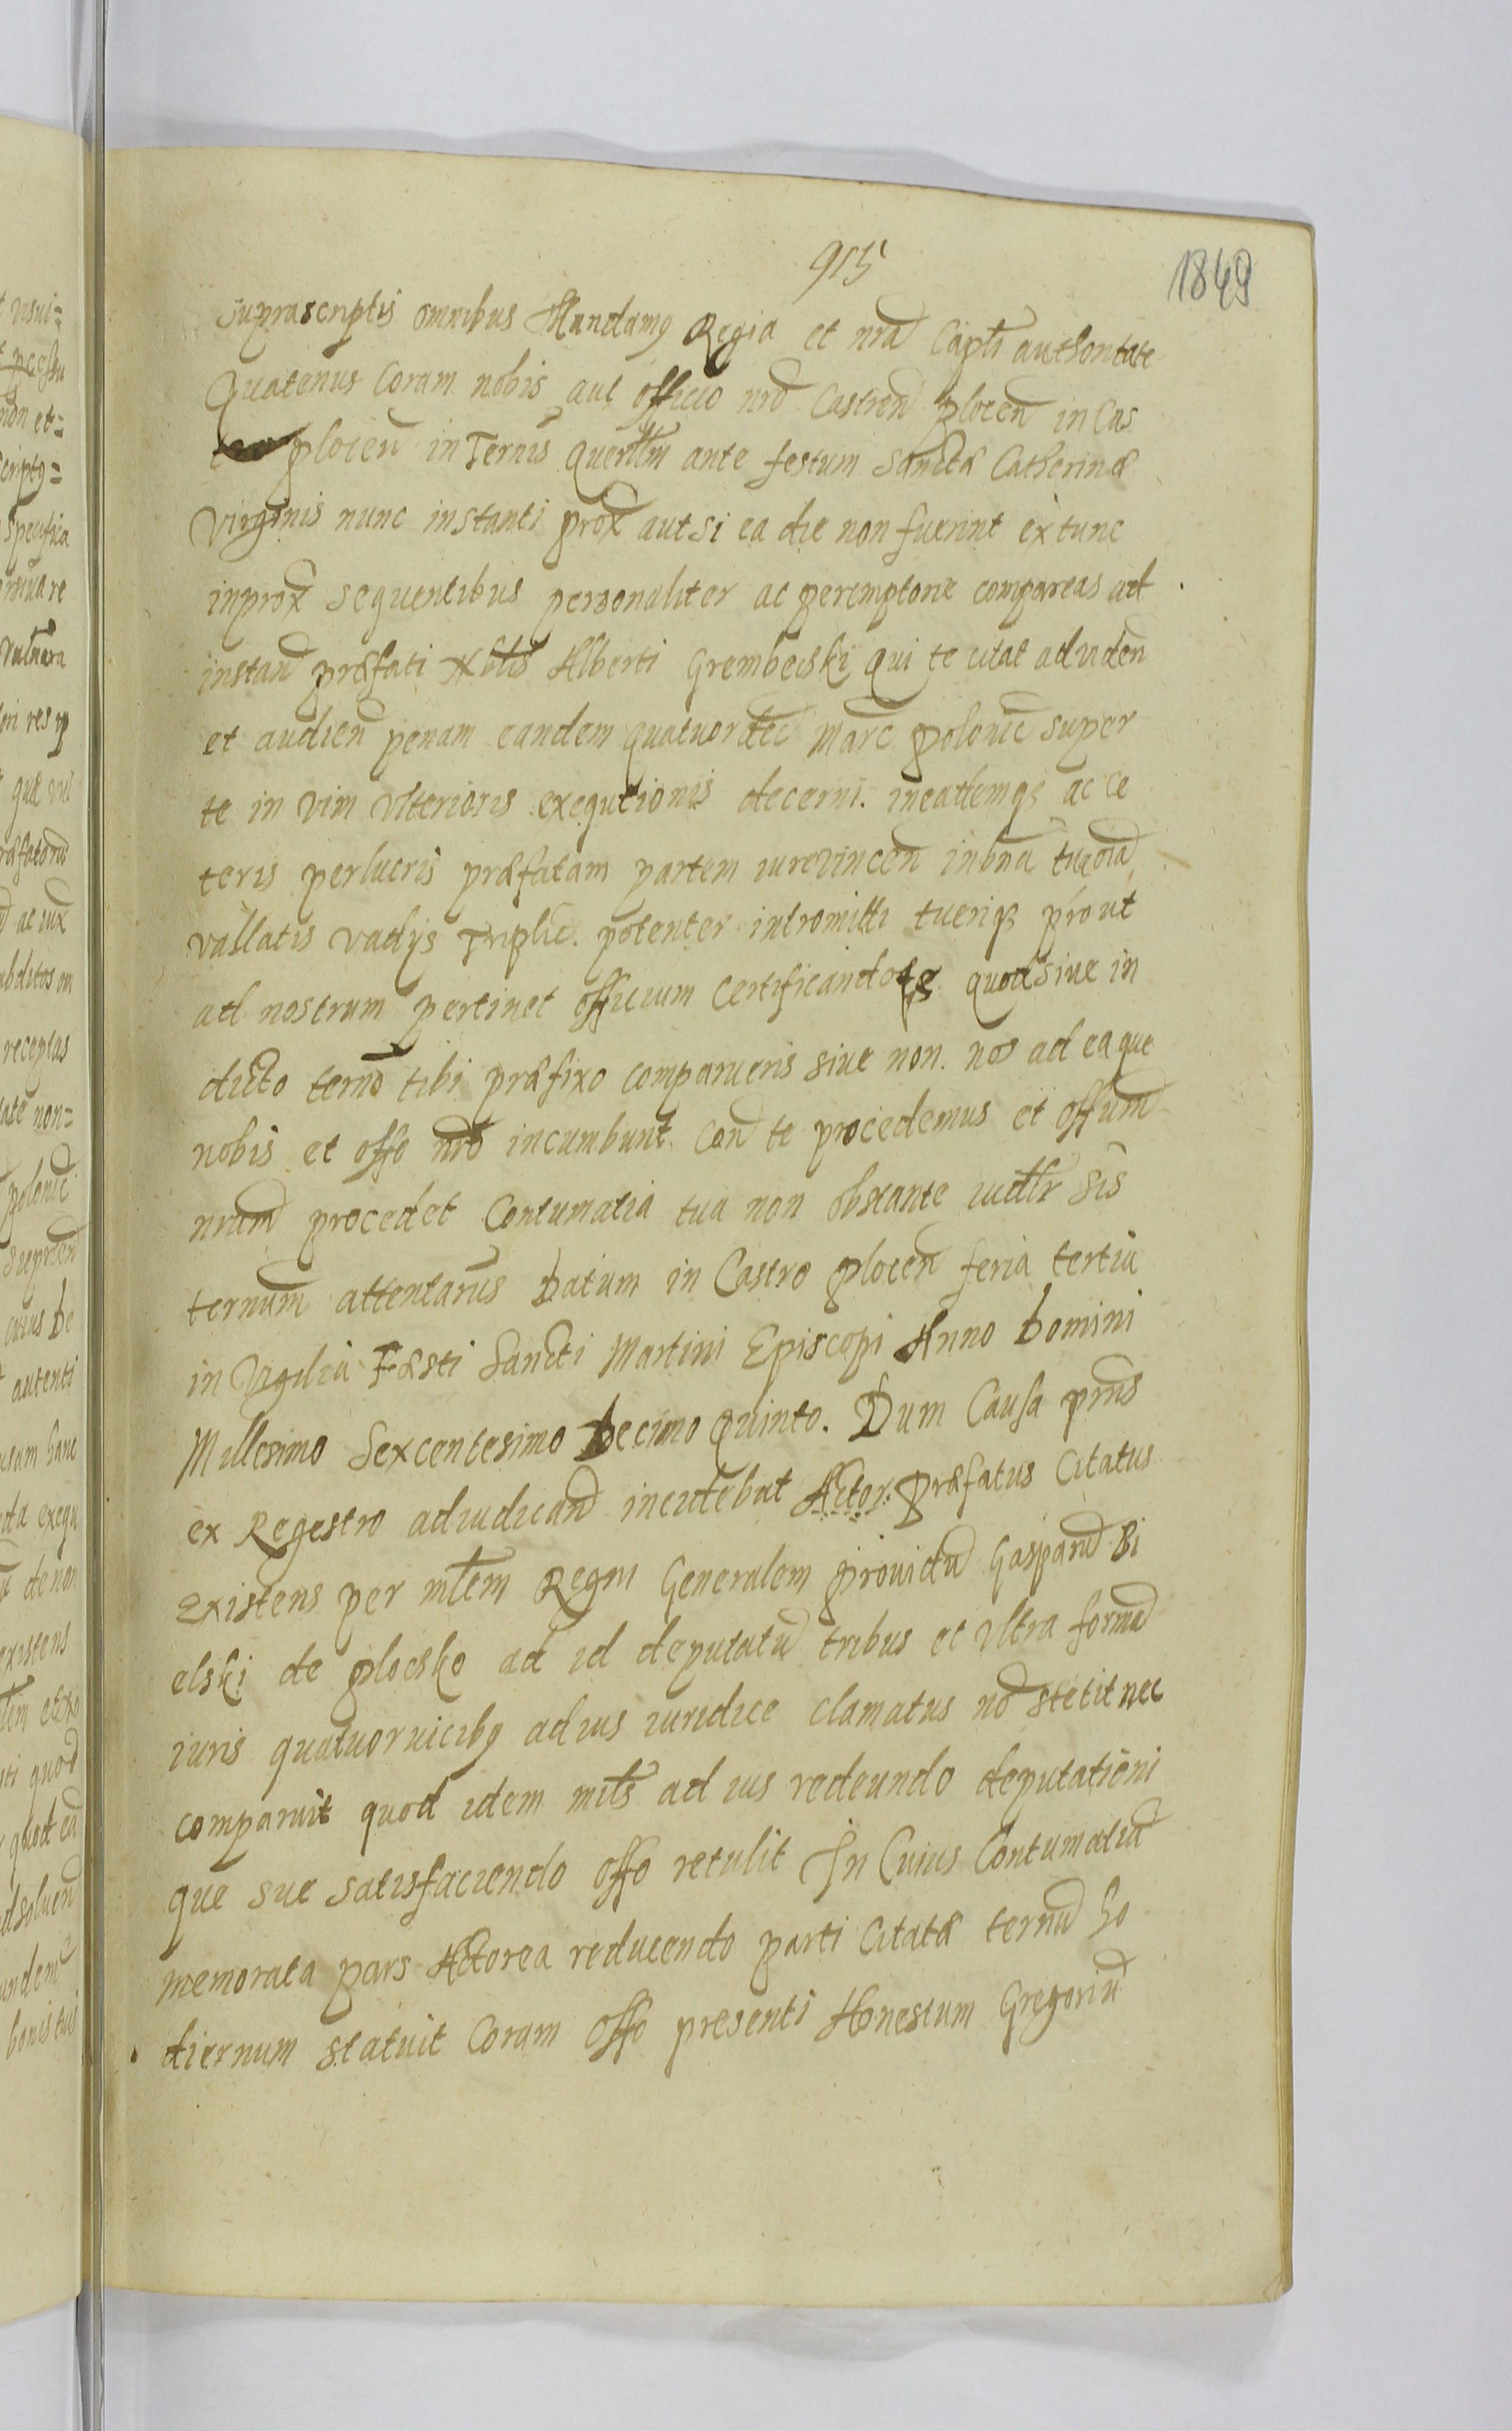 915
1849
Suprascriptis omnibus Mandamq Regia et nrã Captĩ authoritate
Quatenus Coram nobis aut officio nrõ Castreñ ploceñ in Cas
tro ploceñ in Ternis Querllm̃ ante festum Sanctæ Catherinæ
Virginis nunc instanti prox̃ aut si ea die non fuerint extunc
in prox̃ sequentibus personaliter ac peremptorie compareas ad
instañ præfati Nblis Alberti Grembecski qui te citat ad videñ
et audieñ penam eandem quatuordec̃ Marc̃ polonic̃ super
te in vim ulterioris exequtionis decerni. ineademqȝ ac ce
teris perlucris præfatam partem iurevinceñ in bna tua oia
vallatis vadys Triplic. potenter intromitti tueriqȝ prout
ad nostrum pertinet officium Certificando te quod siue in
dicto termõ tibi præfixo comparueris siue non. nos ad ea que
nobis et offo nrõ incumbunt. Coñ te procedemus et offium
nrum̃ procedet Contumatia tua non obstante iudlr̃ Sis
ternum̃ attentarus̃ Datum in Castro ploceñ feria tertia
in Vigilia Fæsti Sancti Martini Episcopi Anno Domini
Millesimo Sexcentesimo Decimo Quinto. Dum Causa pñs
ex Regestro adiudicañ incidebat Actor. præfatus Citatus
Existens per mltem̃ Regni Generalem prouidũ Gasparũ Bi
elski de plocsko ad id deputatũ tribus et vltra formã
iuris quatuor vicibq ad ius iuridice clamatus nõ stetit nec
comparuit quod idem mils̃ ad ius redeundo deputationi
que sue satisfaciendo offo retulit In Cuius Contumatiã
memorata pars Actorea reducendo parti Citatæ ternũ ho
diernum statuit Coram Offo presenti Honestum Gregoriũ